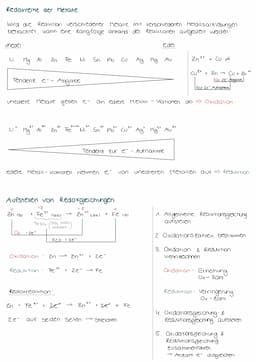 Redoxreihe der Metalle
Wird die Reaktion verschiedener Metalle mit verschiedenen Metallsalzlösungen
betrachtet, kann eine Rangfolge anhand der Reaktionen aufgestellt werden
unedel Edel
Li Mg Al Zn Fe Ni Sn Pb Cu Ag Hg Au
Tendenz e⁻-Abgabe
Zn²⁺ + Cu ⇏
Cu²⁺ + Zn → Cu + Zn²⁺
unedlere Metalle geben e⁻ an edlere Metall-Kationen ab ⇒ Oxidation
Tendenz zur e⁻-Aufnahme
edlere Metall-Kationen nehmen e⁻ von unedleren Metallen auf ⇒ Reduktion
Aufstellen von Redoxgleichungen
Oxidation:
Reduktion:
Redoxreaktion:
2e⁻ auf beiden Seiten → streichen
1. Allgemeine Reaktionsgleichung
aufstellen
2. Oxidationszahlen bestimmen
3. Oxidation & Reduktion
kennzeichnen
Oxidation: Erhöhung
Ox-Zahl
Reduktion: Verringerung
Ox-Zahl
4. Oxidationsgleichung &
Reduktionsgleichung aufstellen
5. Oxidationsgleichung &
Reduktionsgleichung
zusammenfassen
→ Anzahl e⁻ angleichen